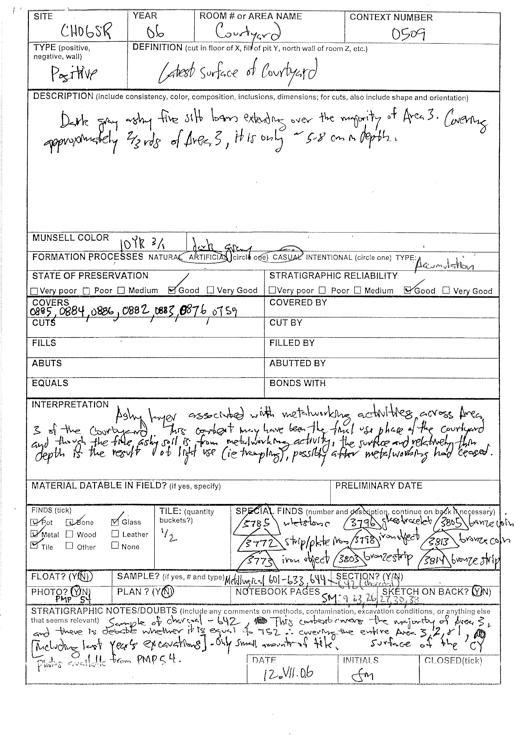 SITE YEAR ROOM # or AREA NAME CONTEXT NUMBER
CH06SR 06 Courtyard 0509
TYPE (positive, negative, wall) DEFINITION (cut in floor of X, fill of pit Y, north wall of room Z, etc.)
Positive Latest surface of Courtyard
DESCRIPTION (include consistency, color, composition, inclusions, dimensions; for cuts, also include shape and orientation)
Dark gray ashy fine silt loam extending over the majority of Area 3. Covering
approximately 2/3rds of Area 3, it is only ~ 5-8 cm in depth.
MUNSELL COLOR 10YR 3/1 dark gray
FORMATION PROCESSES NATURAL ARTIFICIAL (circle one) CASUAL INTENTIONAL (circle one) TYPE: Accumulation
STATE OF PRESERVATION STRATIGRAPHIC RELIABILITY
Very poor Poor Medium Good Very Good Very poor Poor Medium Good Very Good
COVERS COVERED BY
0885, 0884, 0886, 0882, 0883, 0876, 0759
CUTS CUT BY
FILLS FILLED BY
ABUTS ABUTTED BY
EQUALS BONDS WITH
INTERPRETATION
Ashy layer associated with metalworking activities across Area
3 of the Courtyard. This context may have been the final use phase of the courtyard
and though the fine, ashy soil is from metalworking activity, the surface and relatively thin
depth is the result of light use (ie tramping), possibly after metalworking had ceased.
MATERIAL DATABLE IN FIELD? (if yes, specify) PRELIMINARY DATE
FINDS (tick) TILE: (quantity buckets?) SPECIAL FINDS (number and description, continue on back if necessary)
Pot Bone Glass 1/2 3785 whetstone 3796 glass bracelet 3805 bronze coin
Metal Wood Leather 3772 strip/plate iron 3798 iron object 3813 bronze coin
Tile Other None 3773 iron object 3803 bronze strip 3814 bronze strip
FLOAT? (Y/N) SAMPLE? (if yes, # and type) Metallurgical 601-633, 644 SECTION? (Y/N)
PHOTO? (Y/N) PLAN? (Y/N) NOTEBOOK PAGES SKETCH ON BACK? (Y/N)
PMP 54 SM
STRATIGRAPHIC NOTES/DOUBTS (include any comments on methods, contamination, excavation conditions, or anything else
that seems relevant) Sample of charcoal = 642. This context covers the majority of Area 3,
and there is debate whether it is equal to 752 ∴ covering the entire Area 3, 2, & 1,
[including last year's excavations] - Only small amounts of tile. surface of the CY
Photos available from PMP 54.
DATE INITIALS CLOSED(tick)
12.VII.06